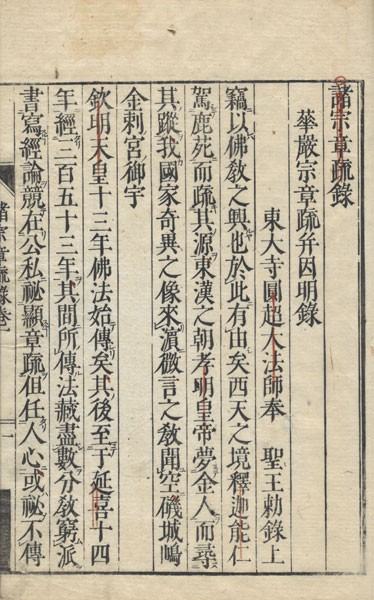 諸宗章疏錄
華嚴宗章疏幷因明錄
東大寺圓超大法師奉 聖王勅錄上
竊以佛教之興也於此有由矣西天之境釋迦能仁
駕鹿苑而疏其源東漢之朝孝明皇帝夢金人而尋
其蹤我國家奇異之像來濵微言之敎聞空磯城嶋
金剌宮御宇
欽明天皇十三年佛法始傳矣其後至于延喜十四
年經二百五十三年其間所傳法藏盡數分敎窮派
書寫經論競在公私祕顯章疏但任人心或祕不傳
諸宗章疏錄卷一